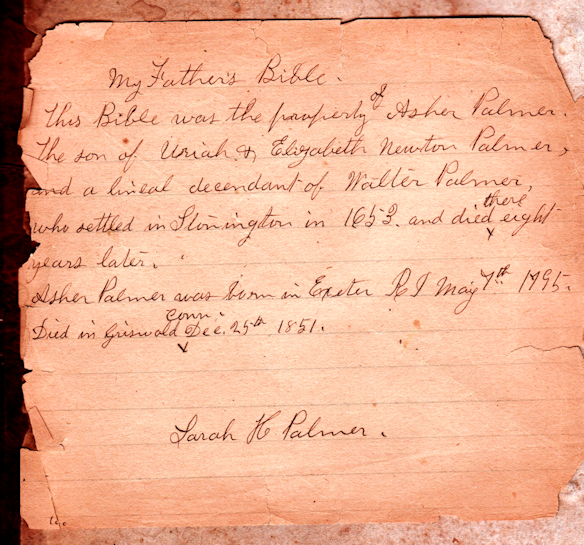 My Father's Bible.
This Bible was the property of Asher Palmer.
The son of Uriah & Elizabeth Newton Palmer,
and a lineal decendant of Walter Palmer,
who settled in Stonington in 1653. and died there eight
years later.
Asher Palmer was born in Exeter R I May 7th 1795.
Died in Griswold Conn. Dec. 25th 1851.
Sarah H Palmer.